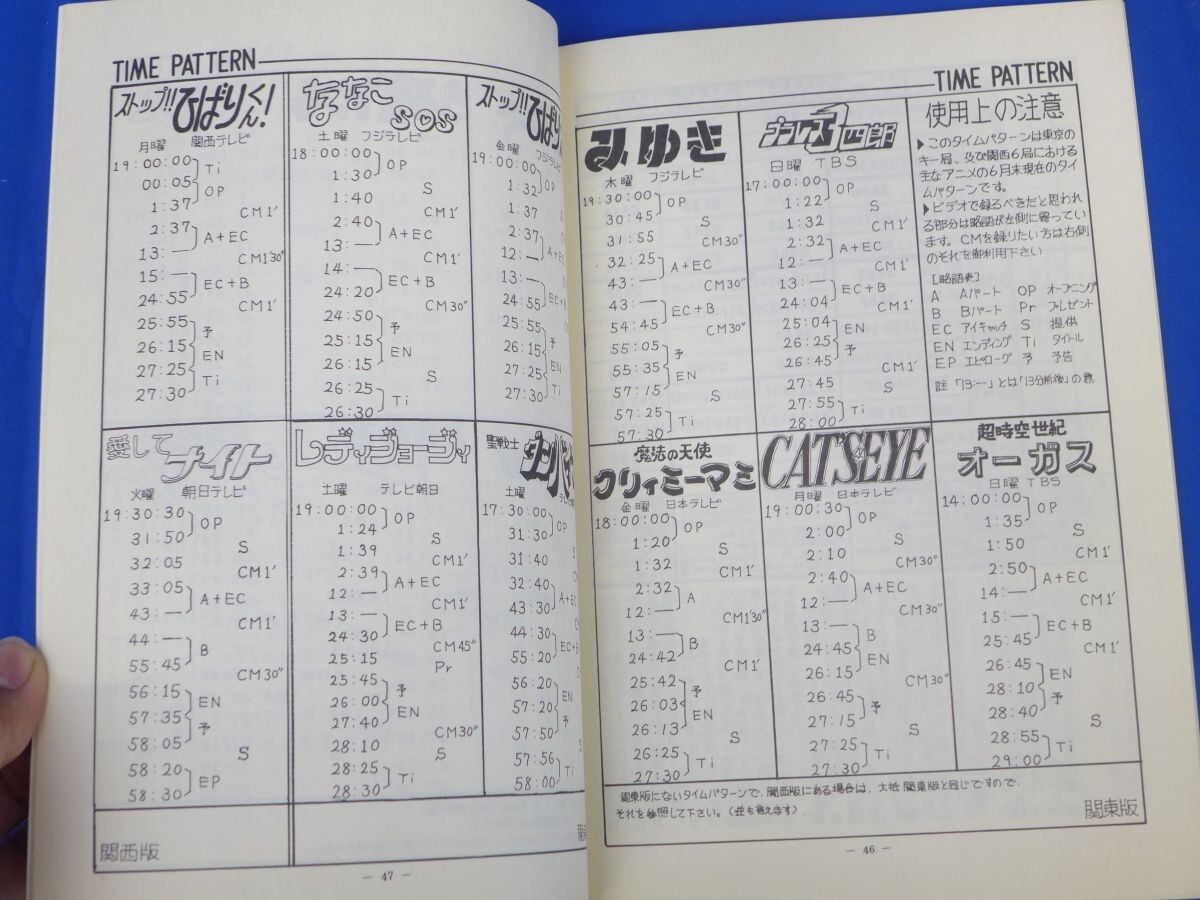 TIME PATTERN
ストップ!!ひばりくん!
月曜 関西テレビ
19:00:00
Ti
00:05
OP
1:37
CM1'
2:37
A+EC
13:―
CM1'30"
15:―
EC+B
24:55
CM1'
25:55
予
26:15
EN
27:25
Ti
27:30
ななこSOS
土曜 フジテレビ
18:00:00
OP
1:30
S
1:40
CM1'
2:40
A+EC
13:―
CM1'
14:―
EC+B
24:20
CM30"
24:50
予
25:15
EN
26:15
S
26:25
Ti
26:30
ストップ!!ひばり
金曜 フジテレビ
19:00:00
OP
1:32
1:37
2:37
A+E
12:―
13:―
EC+
24:55
25:55
予
26:15
EN
27:25
Ti
27:30
愛してナイト
火曜 朝日テレビ
19:30:30
OP
31:50
S
32:05
CM1'
33:05
A+EC
43:―
CM1'
44:―
B
55:45
CM30"
56:15
EN
57:35
予
58:05
S
58:20
EP
58:30
レディジョージィ
土曜 テレビ朝日
19:00:00
OP
1:24
S
1:39
CM1'
2:39
A+EC
12:―
CM1'
13:―
EC+B
24:30
CM45"
25:15
Pr
25:45
予
26:00
EN
27:40
CM30"
28:10
S
28:25
Ti
28:30
聖戦士 ダンバ
土曜
17:30:00
OP
31:30
31:40
32:40
A+EC
43:30
44:30
EC+
55:20
56:20
EN
57:20
予
57:50
57:56
Ti
58:00
関西版
― 47 ―
TIME PATTERN
みゆき
木曜 フジテレビ
19:30:00
OP
30:45
S
31:55
CM30"
32:25
A+EC
43:―
CM30"
43:―
EC+B
54:45
CM30"
55:05
予
55:35
EN
57:15
S
57:25
Ti
57:30
プラレス3四郎
日曜 TBS
17:00:00
OP
1:22
S
1:32
CM1'
2:32
A+EC
12:―
CM1'
13:―
EC+B
24:04
CM1'
25:04
EN
26:25
予
26:45
CM1'
27:45
S
27:55
Ti
28:00
使用上の注意
▶このタイムパターンは東京の
キー局、及び関西6局における
主なアニメの6月末現在のタイ
ムパターンです。
▶ビデオで録るべきだと思われ
る部分は略語が左側に寄ってい
ます。CMを録りたい方は右側
のそれを御利用下さい
[略語表]
A Aパート OP オープニング
B Bパート Pr プレゼント
EC アイキャッチ S 提供
EN エンディング Ti タイトル
EP エピローグ 予 予告
註「13:―」とは「13分前後」の意
魔法の天使
クリィミーマミ
金曜 日本テレビ
18:00:00
OP
1:20
S
1:32
CM1'
2:32
A
12:―
CM1'30"
13:―
B
24:42
CM1'
25:42
予
26:03
EN
26:13
S
26:25
Ti
27:30
CAT'S EYE
月曜 日本テレビ
19:00:30
OP
2:00
S
2:10
CM30"
2:40
A+EC
12:―
CM30"
13:―
B
24:45
EN
26:15
CM30"
26:45
予
27:15
S
27:25
Ti
27:30
超時空世紀
オーガス
日曜 TBS
14:00:00
OP
1:35
S
1:50
CM1'
2:50
A+EC
14:―
CM1'
15:―
EC+B
25:45
CM1'
26:45
EN
28:10
予
28:40
S
28:55
Ti
29:00
関東版にないタイムパターンで、関西版にある場合は、大抵関東版と同じですので、
それを参照して下さい。(逆も言えます)
関東版
― 46 ―